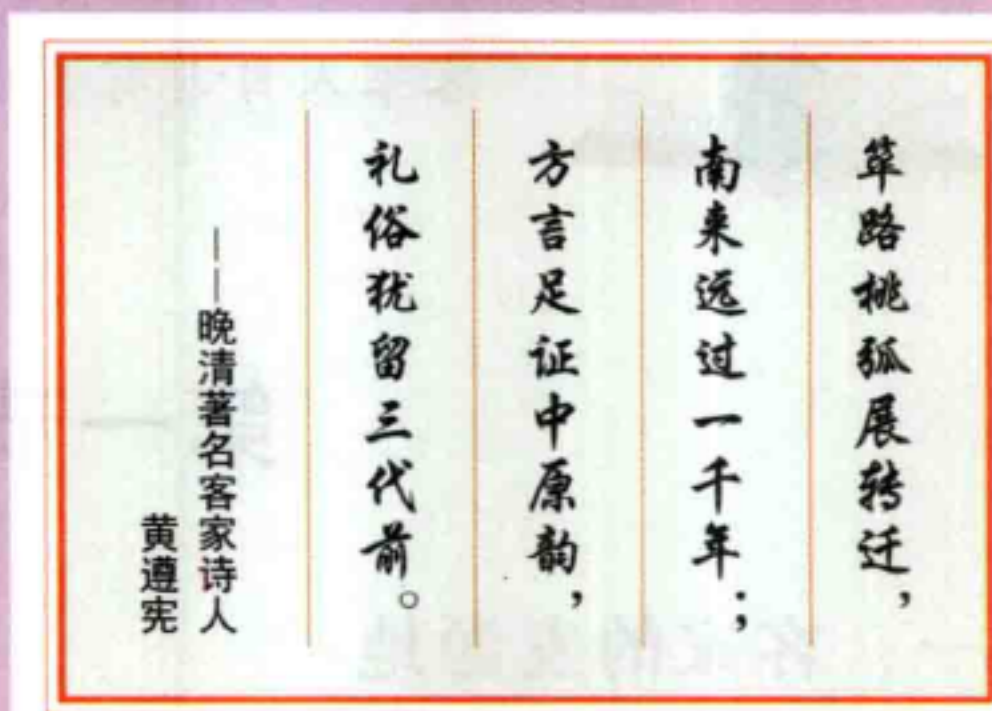 筚路桃弧展转迁，
南来远过一千年；
方言足证中原韵，
礼俗犹留三代前。
——晚清著名客家诗人
黄遵宪